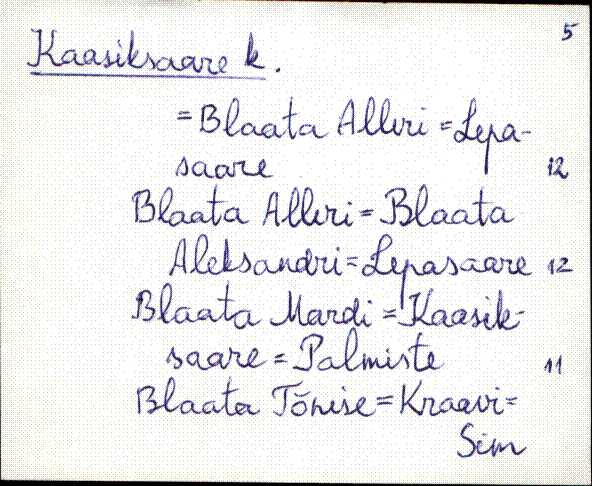 5
Kaasiksaare k.
=Blaata Alleri=Lepa-
saare 12
Blaata Alleri=Blaata
Aleksandri=Lepasaare 12
Blaata Mardi=Kaasik-
saare=Palmiste 11
Blaata Tõnise=Kraavi=
Sim